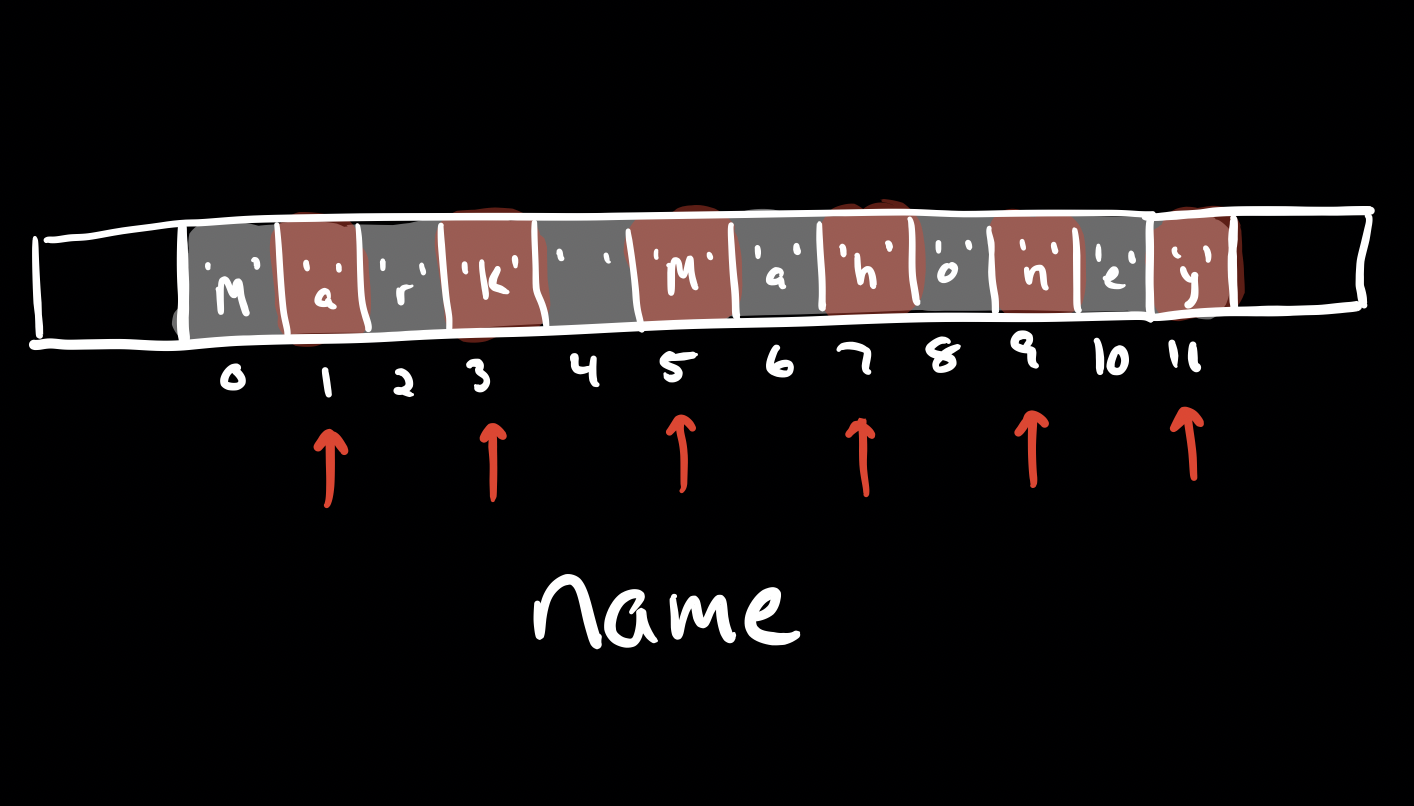 'M' 'a' 'r' 'k' ' ' 'M' 'a' 'h' 'o' 'n' 'e' 'y'
0 1 2 3 4 5 6 7 8 9 10 11
name